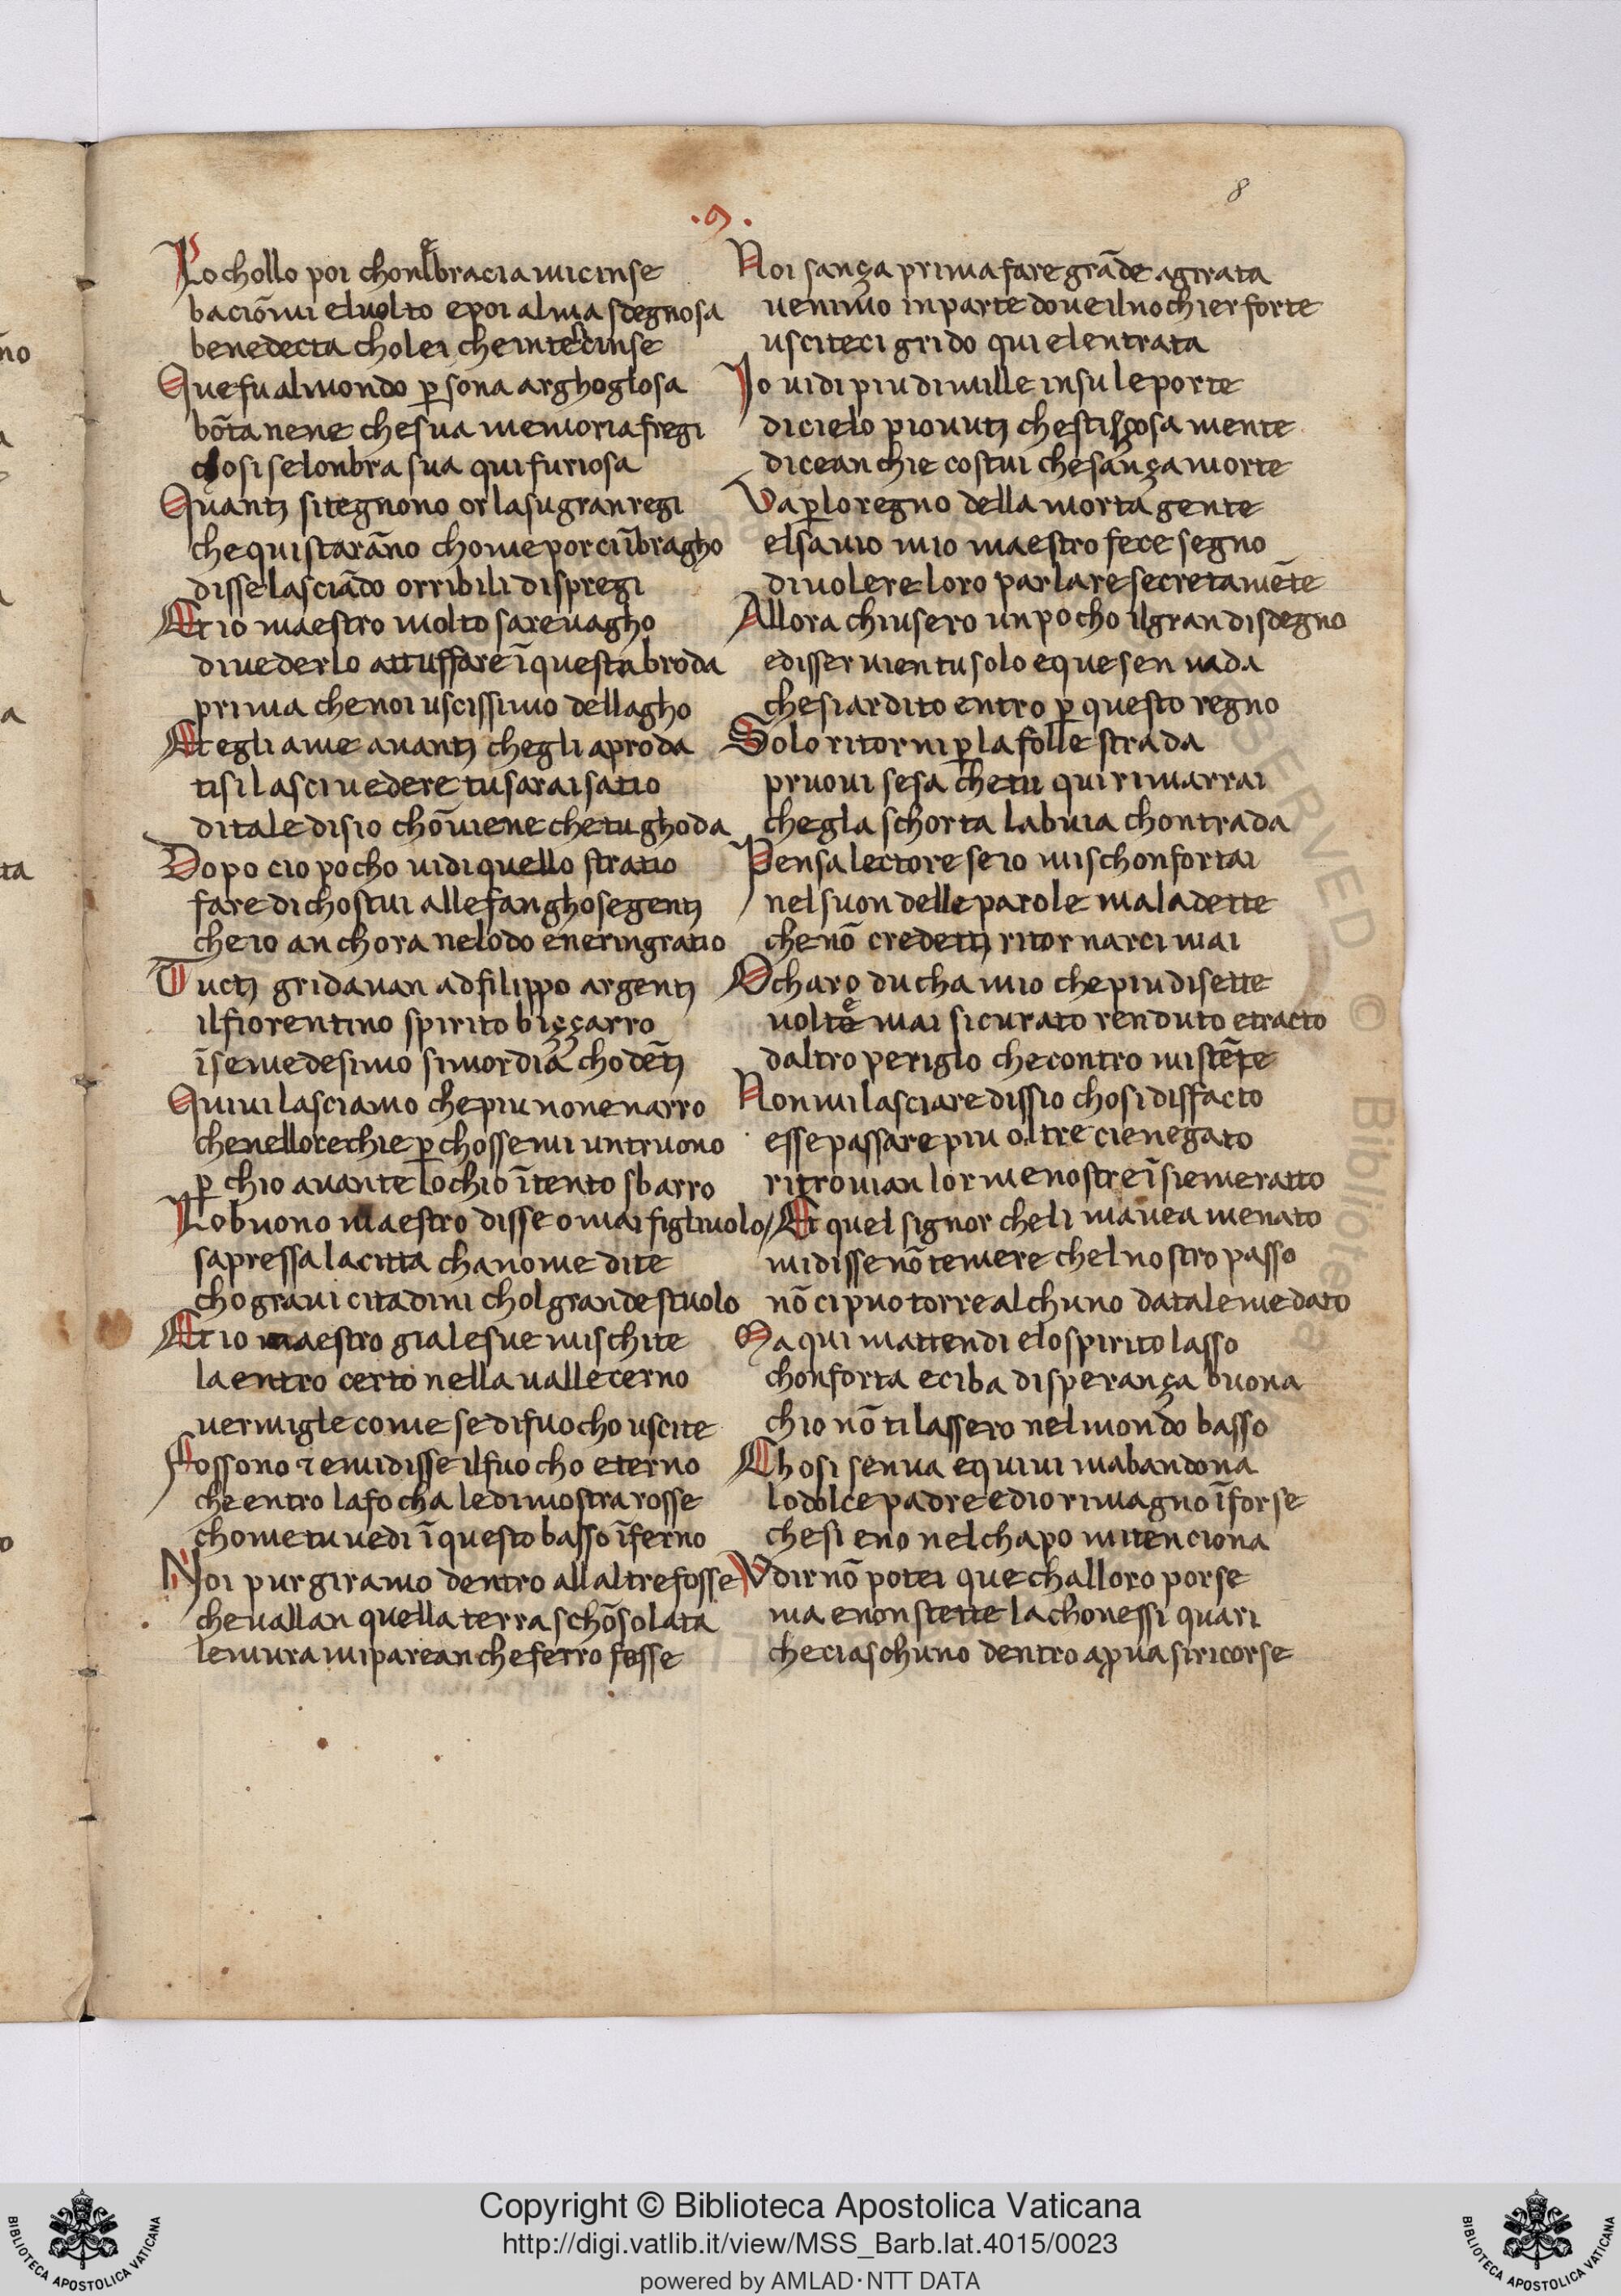 8
.9.
Lo chollo poi chon le bracia mi cinse
baciōmi el volto e poi alma sdegnosa
benedecta cholei che inte si cinse
Que fu al mondo p̱sona arghoglosa
bōta nene che sua memoria fregi
chosi se lonbra sua qui furiosa
Quanti si tegnono or lasu gran regi
che qui starāno chome porci ībragho
disse lasciādo orribili dispregi
Et io maestro molto sare vagho
di vederlo attuffare ī questa broda
prima che noi uscissimo dellagho
Et egli a me avanti chegli aproda
ti si lasci vedere tu sarai satio
di tale disio chōviene che tu ghoda
Dopo cio pocho vidi quello stratio
fare di chostui alle fanghose genti
che io anchora ne lodo e ne ringratio
Tucti gridavan ad filippo argenti
il fiorentino spirito biççarro
ī se medesimo si mordia cho dēti
Quivi lasciamo che piu non enarro
che nellorechie p̱chossemi un truono
p̱ chio avante lochio ītento sbarro
Lo buono maestro disse omai figliuolo
sapressa la citta cha nome dite
cho gravi citadini chol grande stuolo
Et io maestro gia le sue mischite
la entro certo nella valle cerno
vermigle come se di fuocho uscite
Fossono ⁊ e mi disse il fuocho eterno
che entro lafocha le dimostra rosse
chome tu vedi ī questo basso īferno
Noi pur giramo dentro all altre fosse
che vallan quella terra schōsolata
le mura mi parean che ferro fosse
Noi sança prima fare grāde agirata
venimo in parte dove il nochier forte
usciteci grido qui e lentrata
Io vidi piu di mille in su le porte
di cielo piovuti che stiçosa mente
dicean chi e costui che sança morte
Va p̱ lo regno della morta gente
el savio mio maestro fece segno
di volere loro parlare secretamēte
Allora chiusero un pocho il gran disdegno
e disser vien tu solo e que sen vada
che si ardito entro p̱ questo regno
Solo ritorni p̱ la folle strada
pruovi se sa che tu qui rimarrai
che gla schorta la buia chontrada
Pensa lectore se io mi schonfortai
nel suon delle parole maladette
che nō credetti ritornarci mai
O charo ducha mio che piu di sette
volte mai sicurato renduto e tracto
daltro periglo che contro mi stēte
Non mi lasciare dissio chosi disfacto
esse passare piu oltre ci e negato
ritrovian lorme nostre īsieme ratto
Et quel signor che li mavea menato
mi disse nō temere chel nostro passo
nō ci puo torre alchuno da tal e me dato
Ma qui mattendi e lo spirito lasso
chonforta e ciba di sperança buona
chio nō ti lassero nel mondo basso
Chosi sen va e quivi mabandona
lo dolce padre ed io rimagno ī forse
che si e no nel chapo mi tenciona
Udir nō potei que challoro porse
ma e non stette la chonessi quari
che ciaschuno dentro a pruva si ricorse
Copyright © Biblioteca Apostolica Vaticana
http://digi.vatlib.it/view/MSS_Barb.lat.4015/0023
powered by AMLAD·NTT DATA
BIBLIOTECA APOSTOLICA VATICANA
BIBLIOTECA APOSTOLICA VATICANA